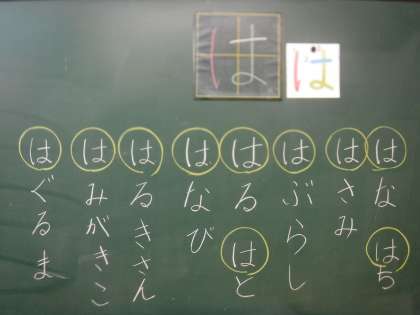 は
は
はな
はち
はさみ
はぶらし
はる
はと
はなび
はるきさん
はみがきこ
はぐるま